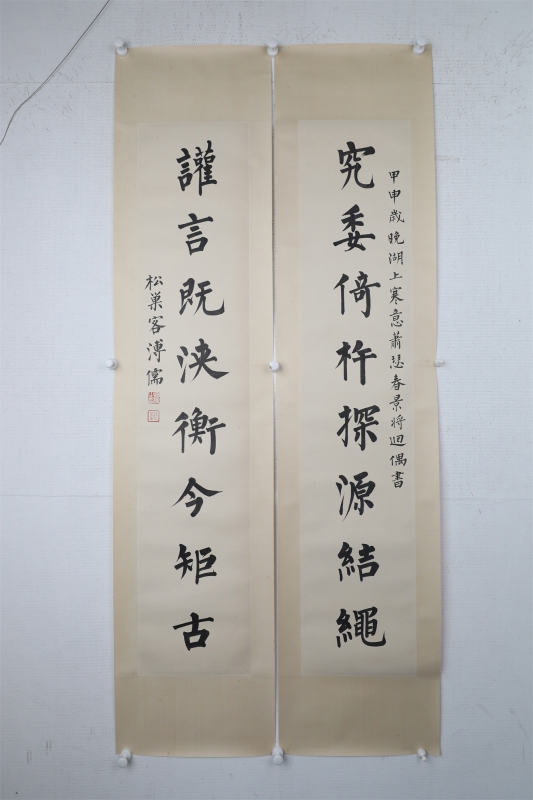 究委倚杵探源結繩
甲申歲晚湖上寒意蕭瑟春景將迴偶書
讙言既浹衡今矩古
松巢客溥儒